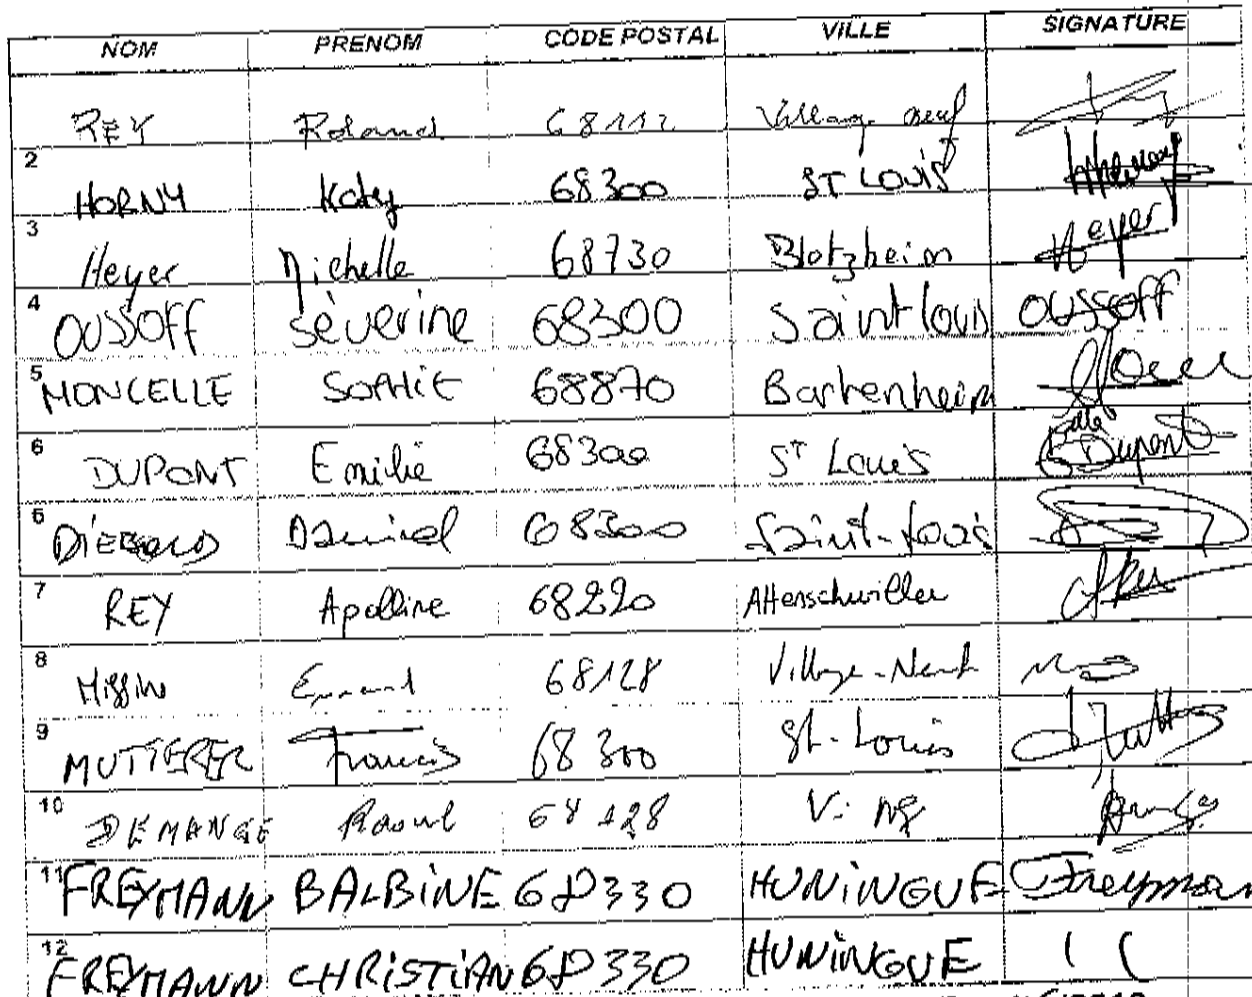 NOM PRENOM CODE POSTAL VILLE SIGNATURE
REY Roland 68112 Village neuf
2 HORNY Katy 68300 ST LOUIS
3 Heyer Michelle 68730 Blotzheim Heyer
4 OUSSOFF Séverine 68300 Saint louis OUSSOFF
5 MONCELLE SOPHIE 68870 Bartenheim
6 DUPONT Emilie 68300 ST Louis Dupont
6 DIEBOLD Daniel 68300 Saint-Louis
7 REY Apolline 68220 Attenschwiller
8 68128 Village-Neuf
9 MUTTERER Francis 68300 St-Louis
10 DEMANGE Raoul 68128
11 FREYMANN BALBINE 68330 HUNINGUE Freymann
12 FREYMANN CHRISTIAN 68330 HUNINGUE